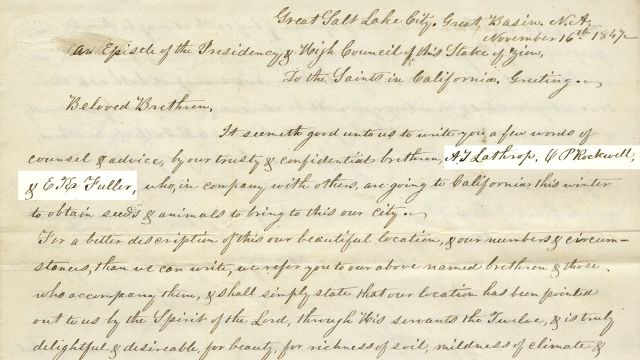 Great Salt Lake City. Great Basin. N.A.
November 16th 1847
An Epistle of the Presidency, & High Council of this Stake of Zion.
To the Saints in California. Greeting.
Beloved Brethren,
It seemeth good unto us to write you a few words of
counsel & advice, by our trusty & confidential brethren, A J Lathrop, O P Rockwell,
& E K Fuller, who, in company with others, are going to California this winter
to obtain seeds & animals to bring to this our city.
For a better discription of this our beautiful location, & our numbers & circum-
stances, than we can write, we refer you to our above named brethren & those
who accompany them, & shall simply state that our location has been pointed
out to us by the Spirit of the Lord, through His servants the Twelve, & is truly
delightful & desireable, for beauty, for richness of soil, mildness of climate &